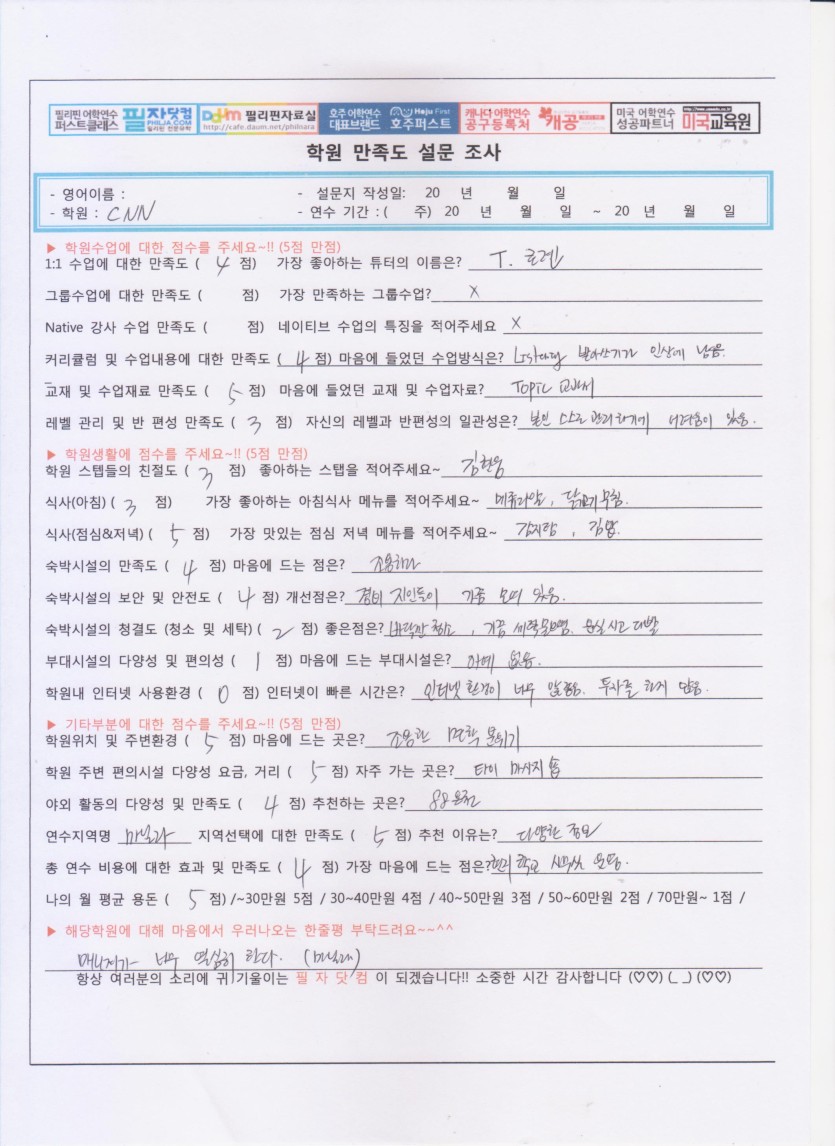 필리핀 어학연수 퍼스트클래스 필자닷컴 PHILJA.COM 필리핀 전문유학 Daum 필리핀자료실 http://cafe.daum.net/philnara 호주 어학연수 대표브랜드 Hoju First 호주퍼스트 캐나다 어학연수 공구등록처 캐공 미국 어학연수 성공파트너 미국교육원
학원 만족도 설문 조사
- 영어이름 : - 설문지 작성일: 20 년 월 일
- 학원 : CNN - 연수 기간 : ( 주) 20 년 월 일 ~ 20 년 월 일
▶ 학원수업에 대한 점수를 주세요~!! (5점 만점)
1:1 수업에 대한 만족도 ( 4 점) 가장 좋아하는 튜터의 이름은? T. 로렌
그룹수업에 대한 만족도 ( 점) 가장 만족하는 그룹수업? X
Native 강사 수업 만족도 ( 점) 네이티브 수업의 특징을 적어주세요 X
커리큘럼 및 수업내용에 대한 만족도 ( 4 점) 마음에 들었던 수업방식은? 받아쓰기가 인상에 남음.
교재 및 수업재료 만족도 ( 5 점) 마음에 들었던 교재 및 수업자료? TOPIC 교재
레벨 관리 및 반 편성 만족도 ( 3 점) 자신의 레벨과 반편성의 일관성은? 본인 스스로 관리하기에 어려움이 있음.
▶ 학원생활에 점수를 주세요~!! (5점 만점)
학원 스텝들의 친절도 ( 3 점) 좋아하는 스탭을 적어주세요~
식사(아침) ( 3 점) 가장 좋아하는 아침식사 메뉴를 적어주세요~ 메추리알,
식사(점심&저녁) ( 5 점) 가장 맛있는 점심 저녁 메뉴를 적어주세요~ 감자탕, 김밥.
숙박시설의 만족도 ( 4 점) 마음에 드는 점은? 조용하다
숙박시설의 보안 및 안전도 ( 4 점) 개선점은? 경비 지인들이 가끔 오며 있음.
숙박시설의 청결도 (청소 및 세탁) ( 2 점) 좋은점은? 청소, 가끔
부대시설의 다양성 및 편의성 ( 1 점) 마음에 드는 부대시설은? 아예 없음.
학원내 인터넷 사용환경 ( 0 점) 인터넷이 빠른 시간은? 인터넷 환경이 너무 투자를 하지 않음.
▶ 기타부분에 대한 점수를 주세요~!! (5점 만점)
학원위치 및 주변환경 ( 5 점) 마음에 드는 곳은? 조용한 면학 분위기
학원 주변 편의시설 다양성 요금, 거리 ( 5 점) 자주 가는 곳은? 타이 마사지 숍
야외 활동의 다양성 및 만족도 ( 4 점) 추천하는 곳은? 88온천
연수지역명 마닐라 지역선택에 대한 만족도 ( 5 점) 추천 이유는? 다양한 정보
총 연수 비용에 대한 효과 및 만족도 ( 4 점) 가장 마음에 드는 점은? 현지 학교
나의 월 평균 용돈 ( 5 점) /~30만원 5점 / 30~40만원 4점 / 40~50만원 3점 / 50~60만원 2점 / 70만원~ 1점 /
▶ 해당학원에 대해 마음에서 우러나오는 한줄평 부탁드려요~~^^
매니저가 너무 열심히 한다.
항상 여러분의 소리에 귀 기울이는 필 자 닷 컴 이 되겠습니다!! 소중한 시간 감사합니다 (♡♡) (_ _) (♡♡)